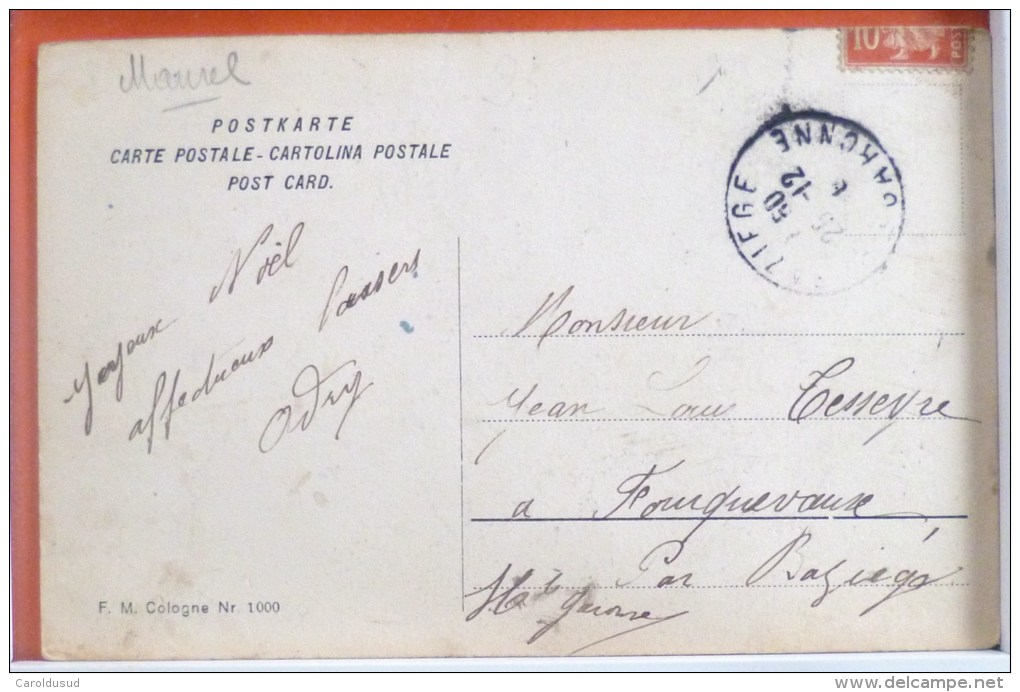 Maurel
POSTKARTE
CARTE POSTALE - CARTOLINA POSTALE
POST CARD.
10
POS
Joyeux Noël
affectueux baisers
Odry
Monsieur
Jean Lou Tesseyre
a Fourquevaux
Par Baziège
Hte Garonne
F. M. Cologne Nr. 1000
Caroldusud
www.delcampe.net